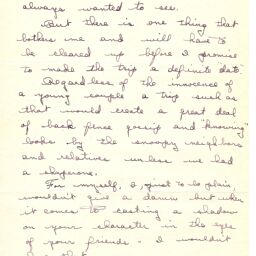 always wanted to see.
But there is one thing that
bothers me and will have to
be cleared up before I promise
to make the trip a definite date.
Regardless of the innocence of
a young couple a trip such as
that would create a great deal
of back fence gossip and "knowing"
looks by the snoopy neighbors
and relatives unless we had
a chaperone.
For myself, I, just to be plain,
wouldn't give a damn but when
it comes to casting a shadow
on your character in the eyes
of your friends - I wouldn't